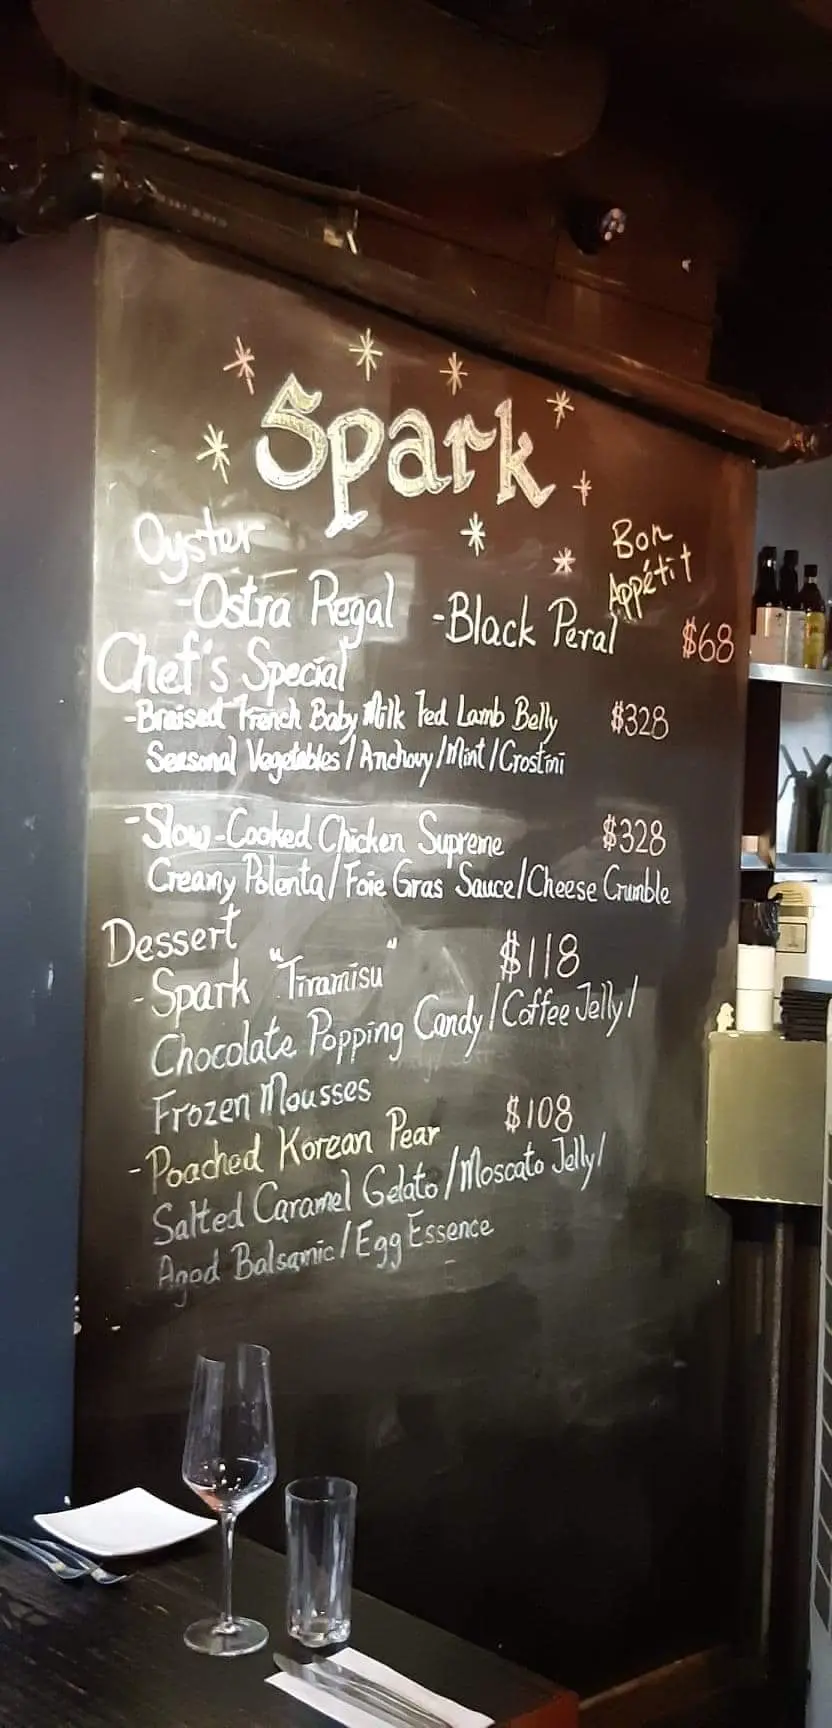 Spark
Bon
Appétit
Oyster
-Ostra Regal -Black Peral $68
Chef's Special
-Braised French Baby Milk Fed Lamb Belly $328
Seasonal Vegetables/Anchovy/Mint/Crostini
-Slow-Cooked Chicken Supreme $328
Creamy Polenta/Foie Gras Sauce/Cheese Crumble
Dessert
-Spark "Tiramisu" $118
Chocolate Popping Candy/Coffee Jelly/
Frozen Mousses
-Poached Korean Pear $108
Salted Caramel Gelato/Moscato Jelly/
Aged Balsamic/Egg Essence